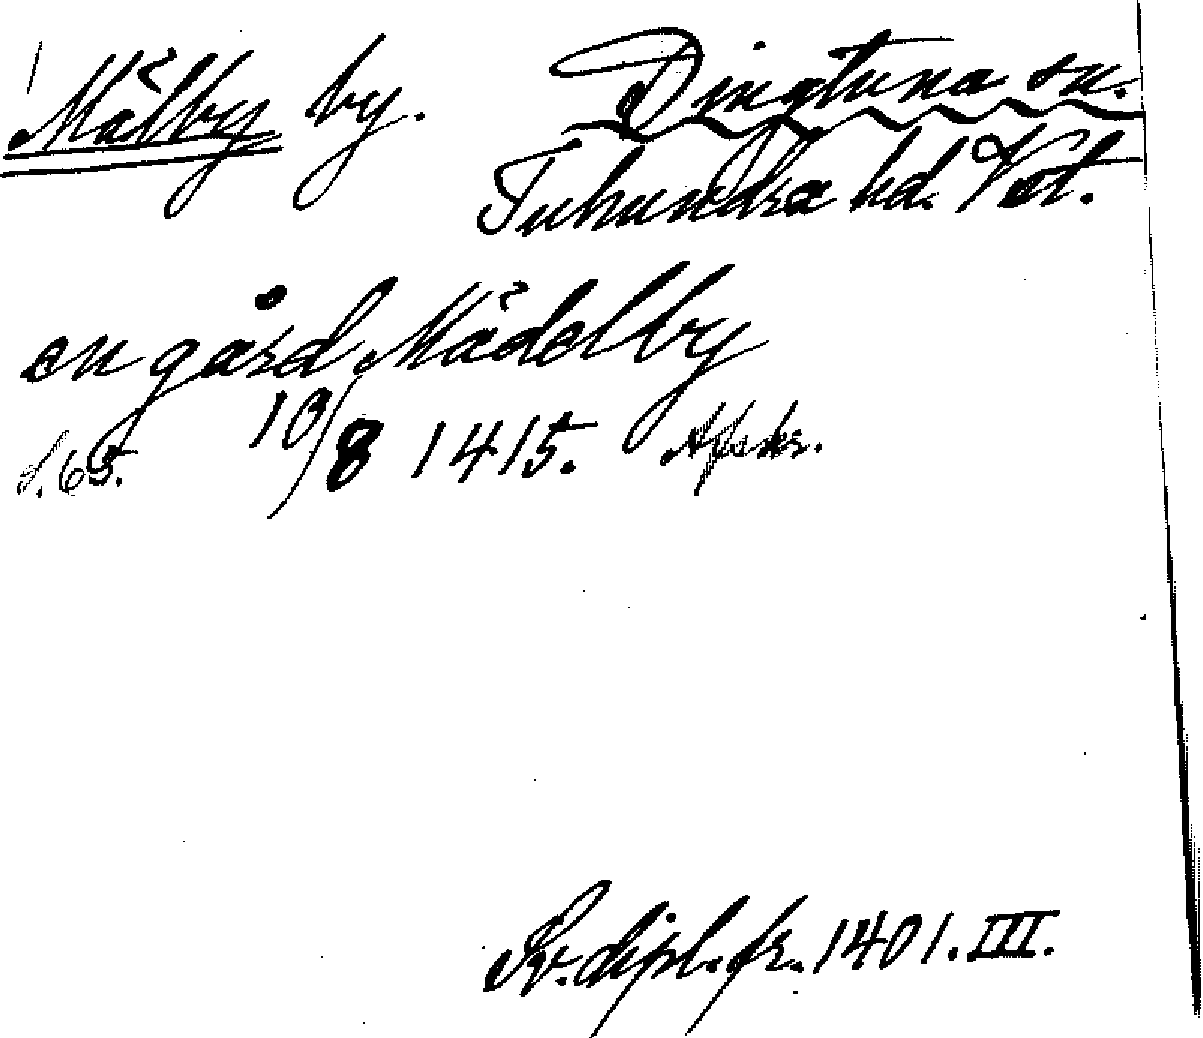 Målby by. Dingtuna sn.
Tuhundra hd. Vstl.
en gård Mädelby
s. 65. 10/8 1415. Afskr.
Sv. dipl. fr. 1401. III.